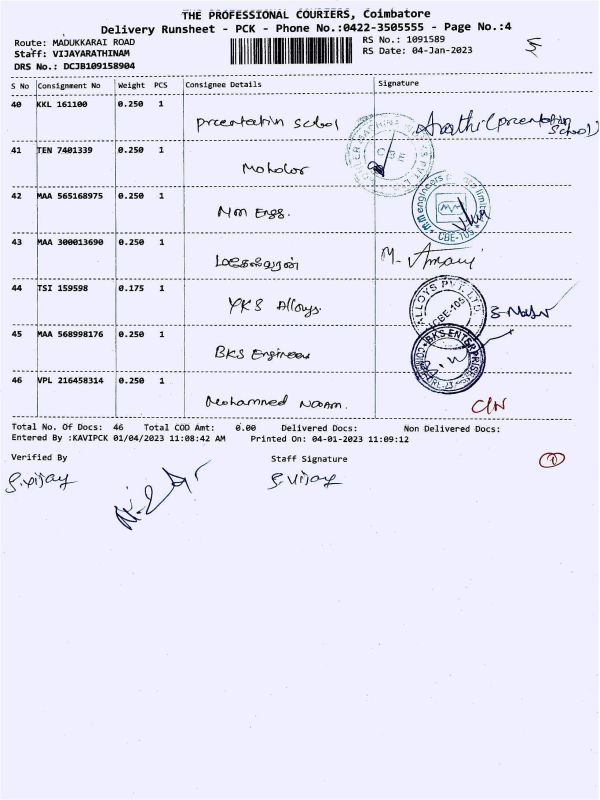 THE PROFESSIONAL COURIERS, Coimbatore
Delivery Runsheet - PCK - Phone No.:0422-3505555 - Page No.:4
Route: MADUKKARAI ROAD
Staff: VIJAYARATHINAM
DRS No.: DCJB109158904
RS No.: 1091589
RS Date: 04-Jan-2023
S No Consignment No Weight PCS Consignee Details Signature
40 KKL 161100 0.250 1 school
41 TEN 7401339 0.250 1
42 MAA 565168975 0.250 1 MM Engs.
m.m engineers limited
CBE-105
43 MAA 300013690 0.250 1 மகேஸ்வரன் M.
44 TSI 159598 0.175 1 YKS Alloys.
ALLOYS PVT. LTD
CBE-105
45 MAA 568998176 0.250 1 BKS Engineers
BKS ENTERPRISES
46 VPL 216458314 0.250 1 Mohammed C/N
Total No. Of Docs: 46 Total COD Amt: 0.00 Delivered Docs: Non Delivered Docs:
Entered By :KAVIPCK 01/04/2023 11:08:42 AM Printed On: 04-01-2023 11:09:12
Verified By Staff Signature
S.Vijay S.Vijay